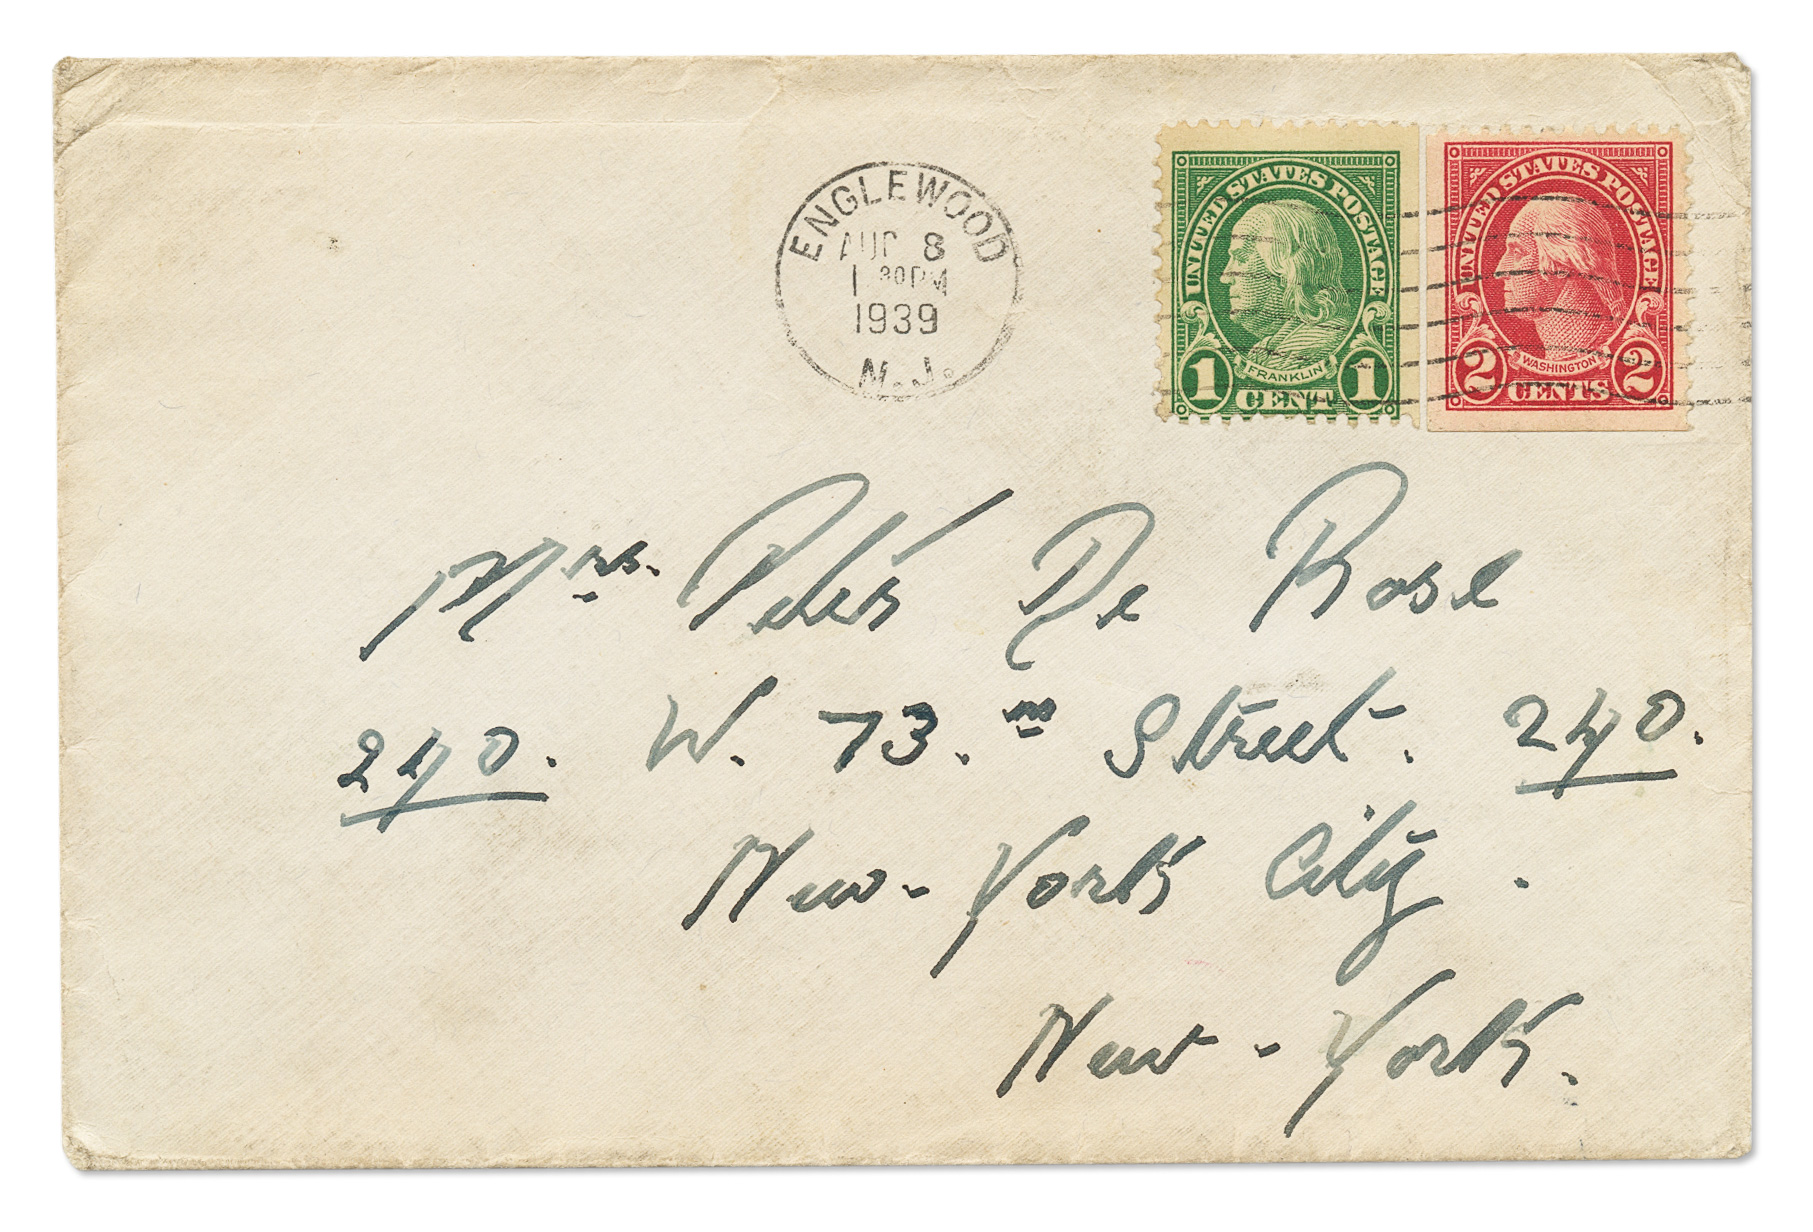 ENGLEWOOD
AUG 8
1 30 PM
1939
N.J.
UNITED STATES POSTAGE
FRANKLIN
1 CENT 1
UNITED STATES POSTAGE
WASHINGTON
2 CENTS 2
Mrs. Peter De Rose
240. W. 73. Street. 240.
New-York City.
New-York.